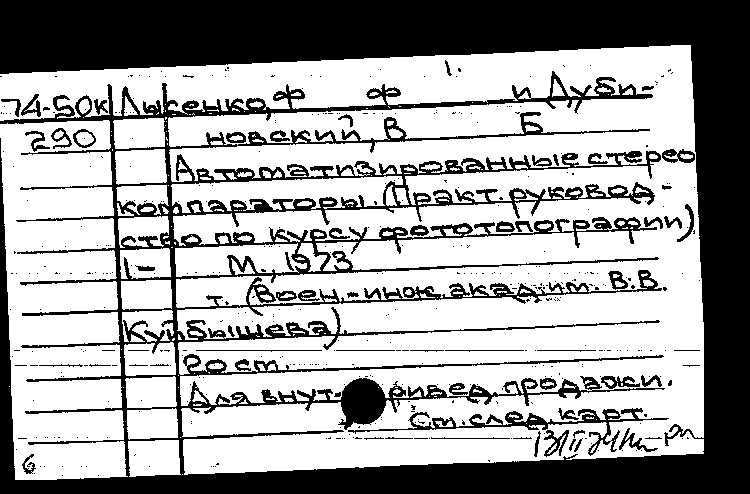 1.
74-50к Лысенко, Ф Ф и Дуби-
290 новский, В Б
Автоматизированные стерео
компараторы. (Практ. руковод-
ство по курсу фототопографии)
1- М., 1973
т. (Воен.-инж. акад. им. В.В.
Куйбышева).
20 см.
Для внут ривед. продажи.
См. след. карт.
6